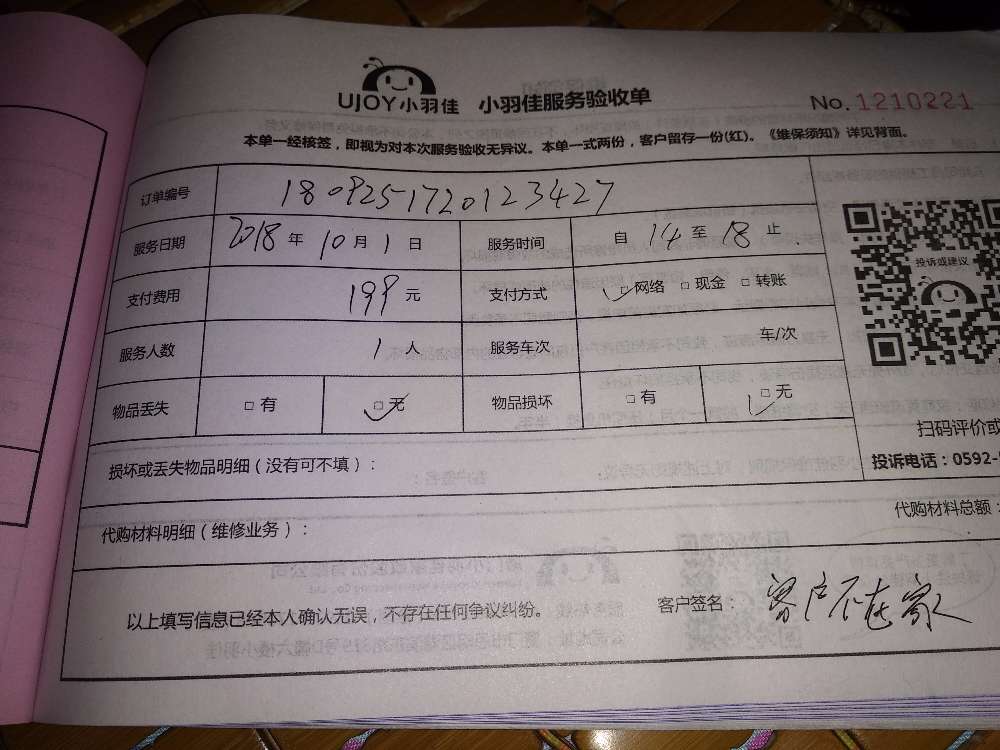 UJOY小羽佳 小羽佳服务验收单 No. 1210221
本单一经核签，即视为对本次服务验收无异议。本单一式两份，客户留存一份(红)。《维保须知》详见背面。
订单编号 1809251720123427
服务日期 2018 年 10 月 1 日 服务时间 自 14 至 18 止
投诉或建议
支付费用 199 元 支付方式 □网络 □现金 □转账
服务人数 1 人 服务车次 车/次
物品丢失 □有 □无 物品损坏 □有 □无
扫码评价或
损坏或丢失物品明细（没有可不填）：
投诉电话：0592-
代购材料明细（维修业务）：
代购材料总额：
以上填写信息已经本人确认无误，不存在任何争议纠纷。 客户签名： 客户不在家